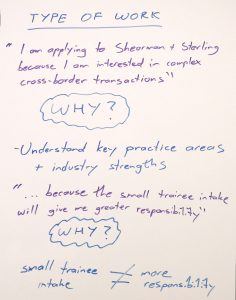 TYPE OF WORK
"I am applying to Shearman + Sterling
because I am interested in complex
cross-border transactions"
WHY?
-Understand key practice areas
+ industry strengths
"... because the small trainee intake
will give me greater responsibility"
WHY?
small trainee ≠ more
intake responsibility